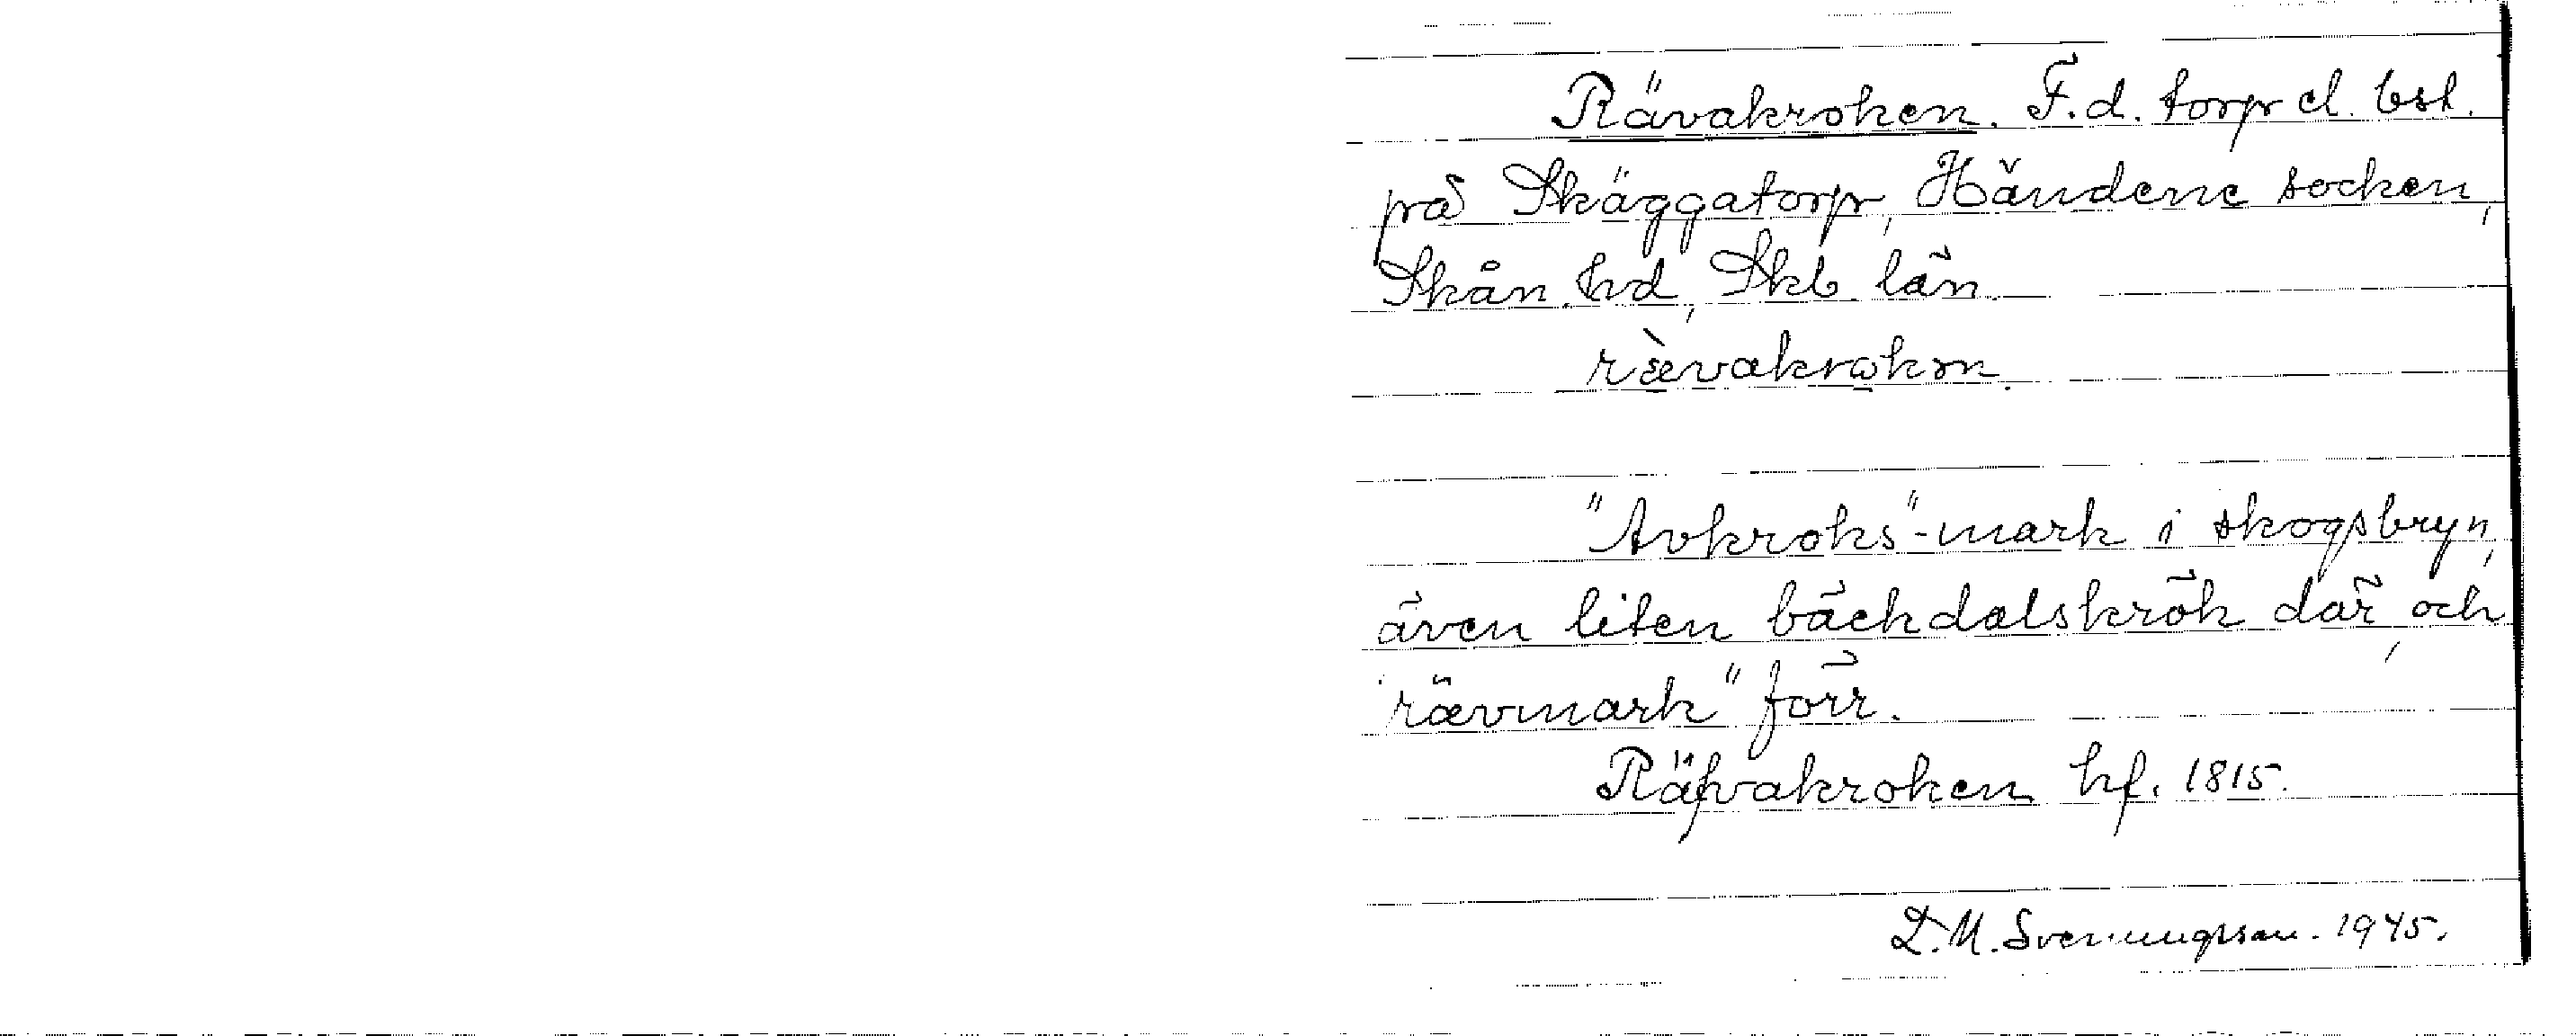 Rävakroken. F.d. torp el. bst.
på Skäggatorp, Händene socken,
Skån. hd, Skb. län.
ræ̀vakrokən.
"Avkroks"-mark i skogsbryn,
även liten bäckdalskrök där, och
"rävmark" förr.
Räfvakroken hf. 1815.
D.M. Svenungsson. 1945.